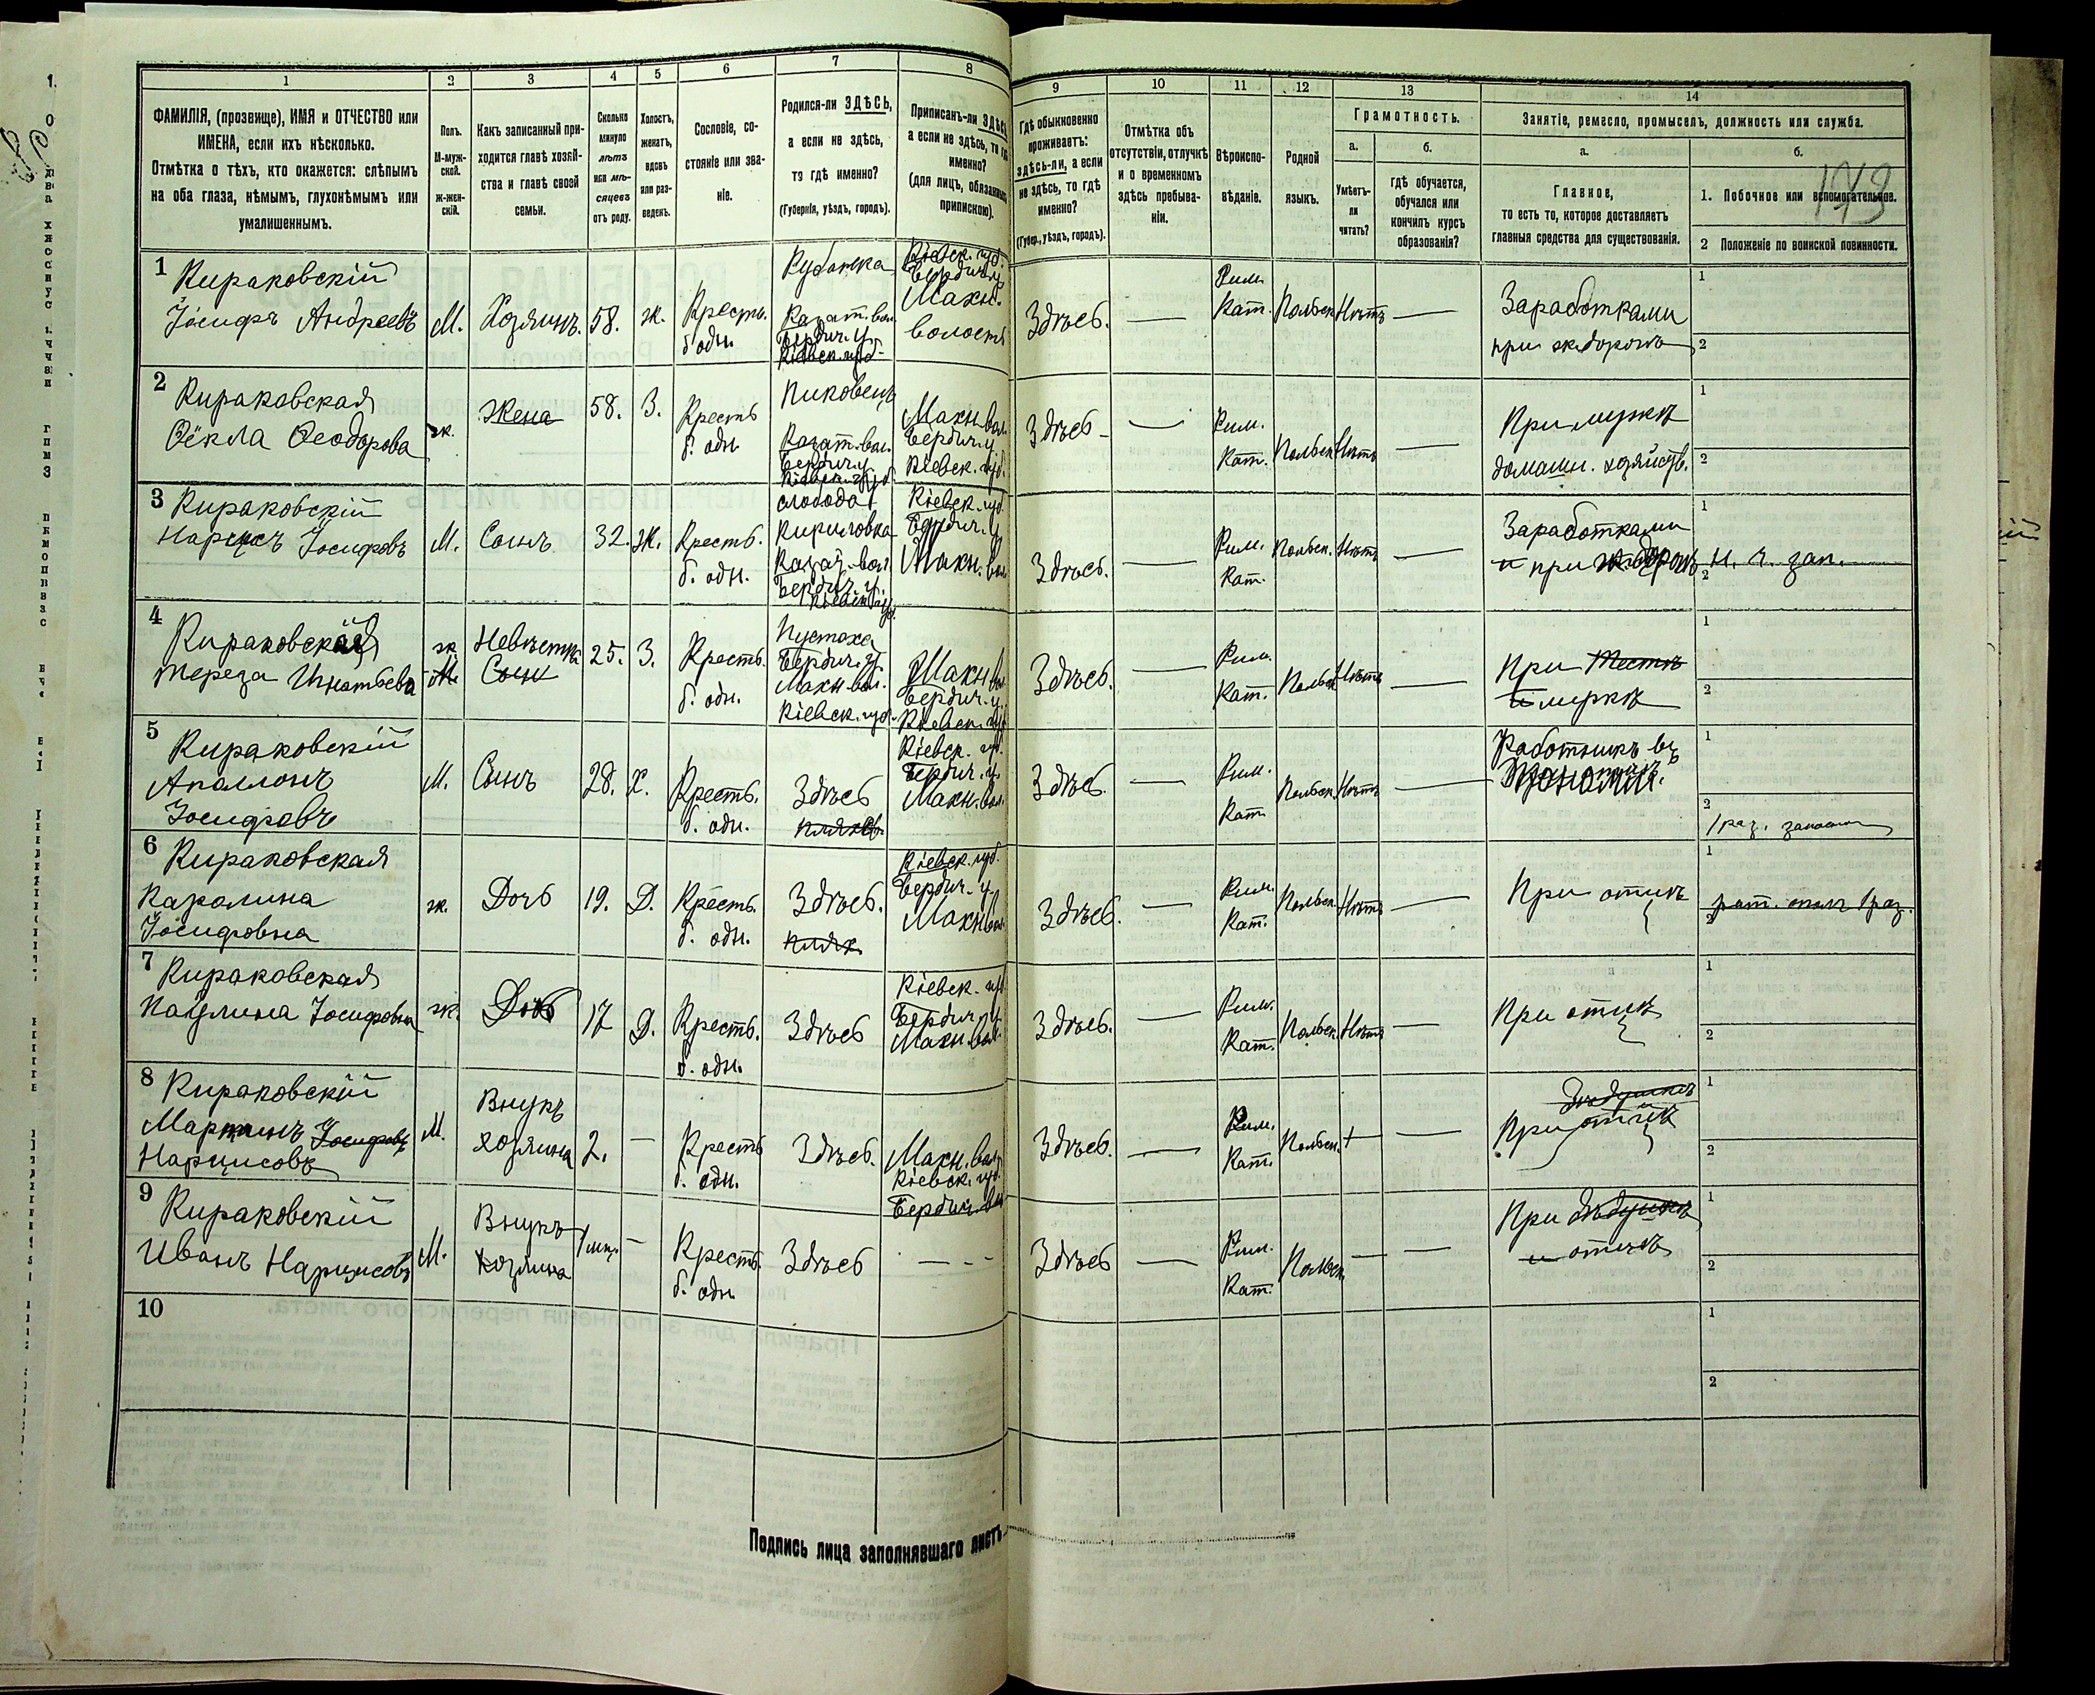 1 2 3 4 5 6 7 8 9 10 11 12 13 14
ФАМИЛІЯ, (прозвище), ИМЯ и ОТЧЕСТВО или
ИМЕНА, если ихъ нѣсколько.
Отмѣтка о тѣхъ, кто окажется: слѣпымъ
на оба глаза, нѣмымъ, глухонѣмымъ или
умалишеннымъ.
Полъ.
М-муж-
ской.
ж-жен-
скій.
Какъ записанный при-
ходится главѣ хозяй-
ства и главѣ своей
семьи.
Сколько
минуло
лѣтъ
или мѣ-
сяцевъ
отъ роду.
Холостъ,
женатъ,
вдовъ
или раз-
веденъ.
Сословіе, со-
стояніе или зва-
ніе.
Родился-ли ЗДѢСЬ,
а если не здѣсь,
то гдѣ именно?
(Губернія, уѣздъ, городъ).
Приписанъ-ли ЗДѢСЬ
а если не здѣсь, то гдѣ
именно?
(для лицъ, обязанныхъ
припискою).
Гдѣ обыкновенно
проживаетъ:
здѣсь-ли, а если
не здѣсь, то гдѣ
именно?
(Губер., уѣздъ, городъ).
Отмѣтка объ
отсутствіи, отлучкѣ
и о временномъ
здѣсь пребыва-
ніи.
Вѣроиспо-
вѣданіе.
Родной
языкъ.
Грамотность.
а.
Умѣетъ-
ли
читать?
б.
гдѣ обучается,
обучался или
кончилъ курсъ
образованія?
Занятіе, ремесло, промыселъ, должность или служба.
а.
Главное,
то есть то, которое доставляетъ
главныя средства для существованія.
б.
1. Побочное или вспомогательное.
2 Положеніе по воинской повинности.
1
Кираковскій
Іосифъ Андреевъ
М.
Хозяинъ.
58.
ж.
Крестъ.
б. одн.
Казат. вол.
Бердич. у
Кіевск. губ.
Кіевск. губ.
Бердич. у.
Махн.
волость
Здѣсь.
—
Рим.
Кат.
Польск
Нѣтъ
—
Заработками
при ж. дорогѣ
1
2
2
Кираковская
Ѳёкла Ѳеодорова
ж.
Жена
58.
З.
Кресть
б. одн.
Пиковецъ
Казат. вол.
Бердич. у
Кіевск. губ.
Махн. вол.
Бердич. у
Кіевск. губ.
Здѣсь
—
Рим.
Кат.
Польск
Нѣтъ
—
При мужѣ
домашн. хозяйств.
1
2
3
Кираковскій
Нарцисъ Іосифовъ
М.
Сынъ
32.
ж.
Кресть.
б. одн.
слобода
Кириловка
Казат. вол
Бердич. у.
Кіевск. губ.
Кіевск. губ.
Бердич. у
Махн. вол
Здѣсь.
Рим.
Кат.
Польск.
Нѣтъ
—
Заработками
и при ж. дорогѣ
1
2
4
Кираковская
Тереза Игнатьева
ж.
М.
Невѣстка
Сын
25.
З.
Кресть.
б. одн.
Пустоха
Бердич. у.
Махн. вол.
Кіевск. губ.
Махн. вол
Бердич. у.
Кіевск. губ
Здѣсь.
—
Рим.
Кат.
Польск
Нѣтъ
—
При тестѣ
и мужѣ
1
2
5
Кираковскій
Аполонъ
Іосифовъ
М.
Сынъ
28.
Х.
Кресть.
б. одн.
Здѣсь
Кіевск. губ.
Бердич. у.
Махн. вол.
Здѣсь
—
Рим.
Кат.
Польск.
Нѣтъ
—
Работникъ въ
Экономіи.
1
2
6
Кираковская
Каралина
Іосифовна
ж.
Дочь
19.
Д.
Кресть.
б. одн.
Здѣсь.
Кіевск. губ.
Бердич. у.
Махн. вол.
Здѣсь.
—
Рим.
Кат.
Польск.
Нѣтъ
—
При отцѣ
1
2
7
Кираковская
Паулина Іосифовна
ж.
Дочь
17
Д.
Кресть.
б. одн.
Здѣсь
Кіевск. губ
Бердич. у.
Махн. вол
Здѣсь.
—
Рим.
Кат.
Польск.
Нѣтъ
—
При отцѣ
1
2
8
Кираковскій
Мартинъ Іосифовъ
Нарцисовъ
М.
Внукъ
хозяина
2.
—
Кресть
б. одн.
Здѣсь.
Махн. вол
Кіевск. губ.
Бердич.
Здѣсь.
—
Рим.
Кат.
Польск.
—
Дѣдушкѣ
При отцѣ
1
2
9
Кираковскій
Иванъ Нарцисовъ
М.
Внукъ
хозяина
—
Кресть.
б. одн
Здѣсь
— - -
Здѣсь
—
Рим.
Кат.
Польск
—
—
При дѣдушкѣ
и отцѣ
1
2
10
1
2
Подпись лица заполнявшаго листъ